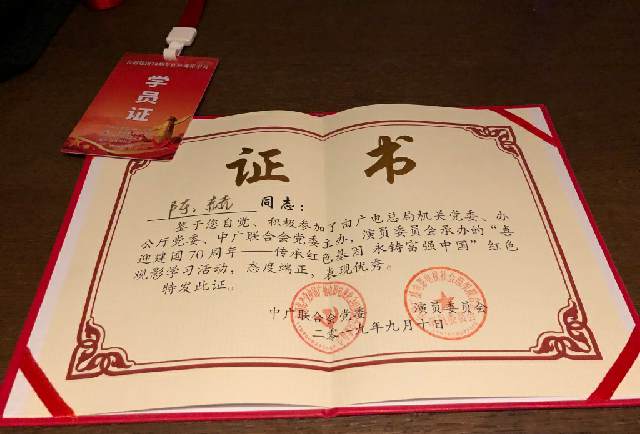 学员证
证书
陈 同志：
鉴于您自觉、积极参加了由广电总局机关党委、办
公厅党委、中广联合会党委主办，演员委员会承办的“喜
迎建国70周年——传承红色基因 永铸富强中国”红色
观影学习活动，态度端正，表现优秀。
特发此证。
中广联合会党委 演员委员会
二零一九年九月十日